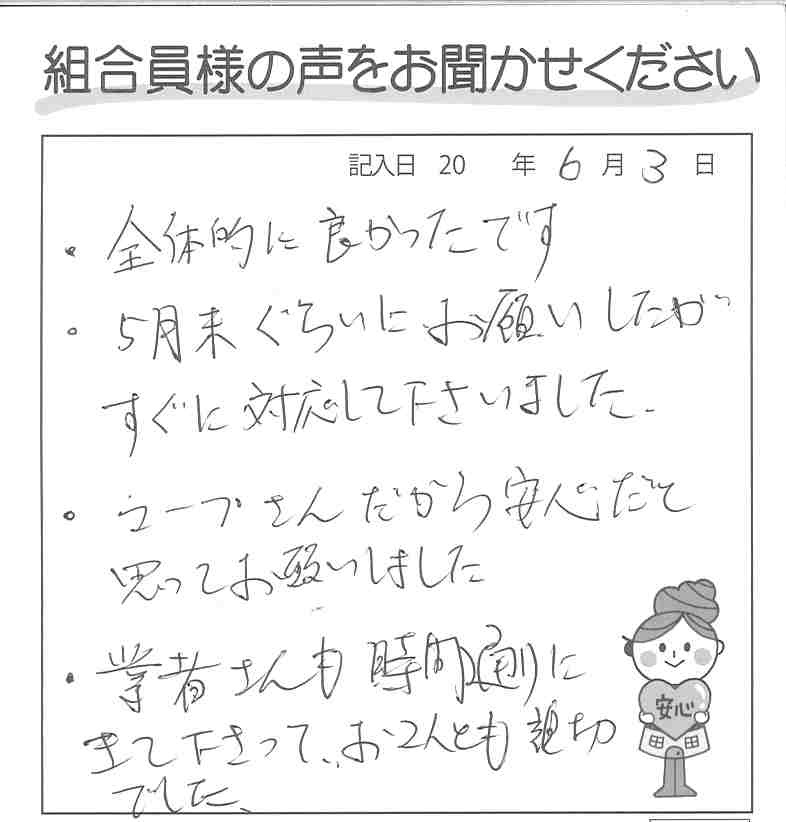 組合員様の声をお聞かせください
記入日 20 年 6 月 3 日
・全体的に良かったです
・5月末ぐらいにお願いしたが
すぐに対応して下さいました.
・コープさんだから安心だと
思ってお願いしました
・業者さんも時間通りに
きて下さって、お2人とも親切
でした、
安心